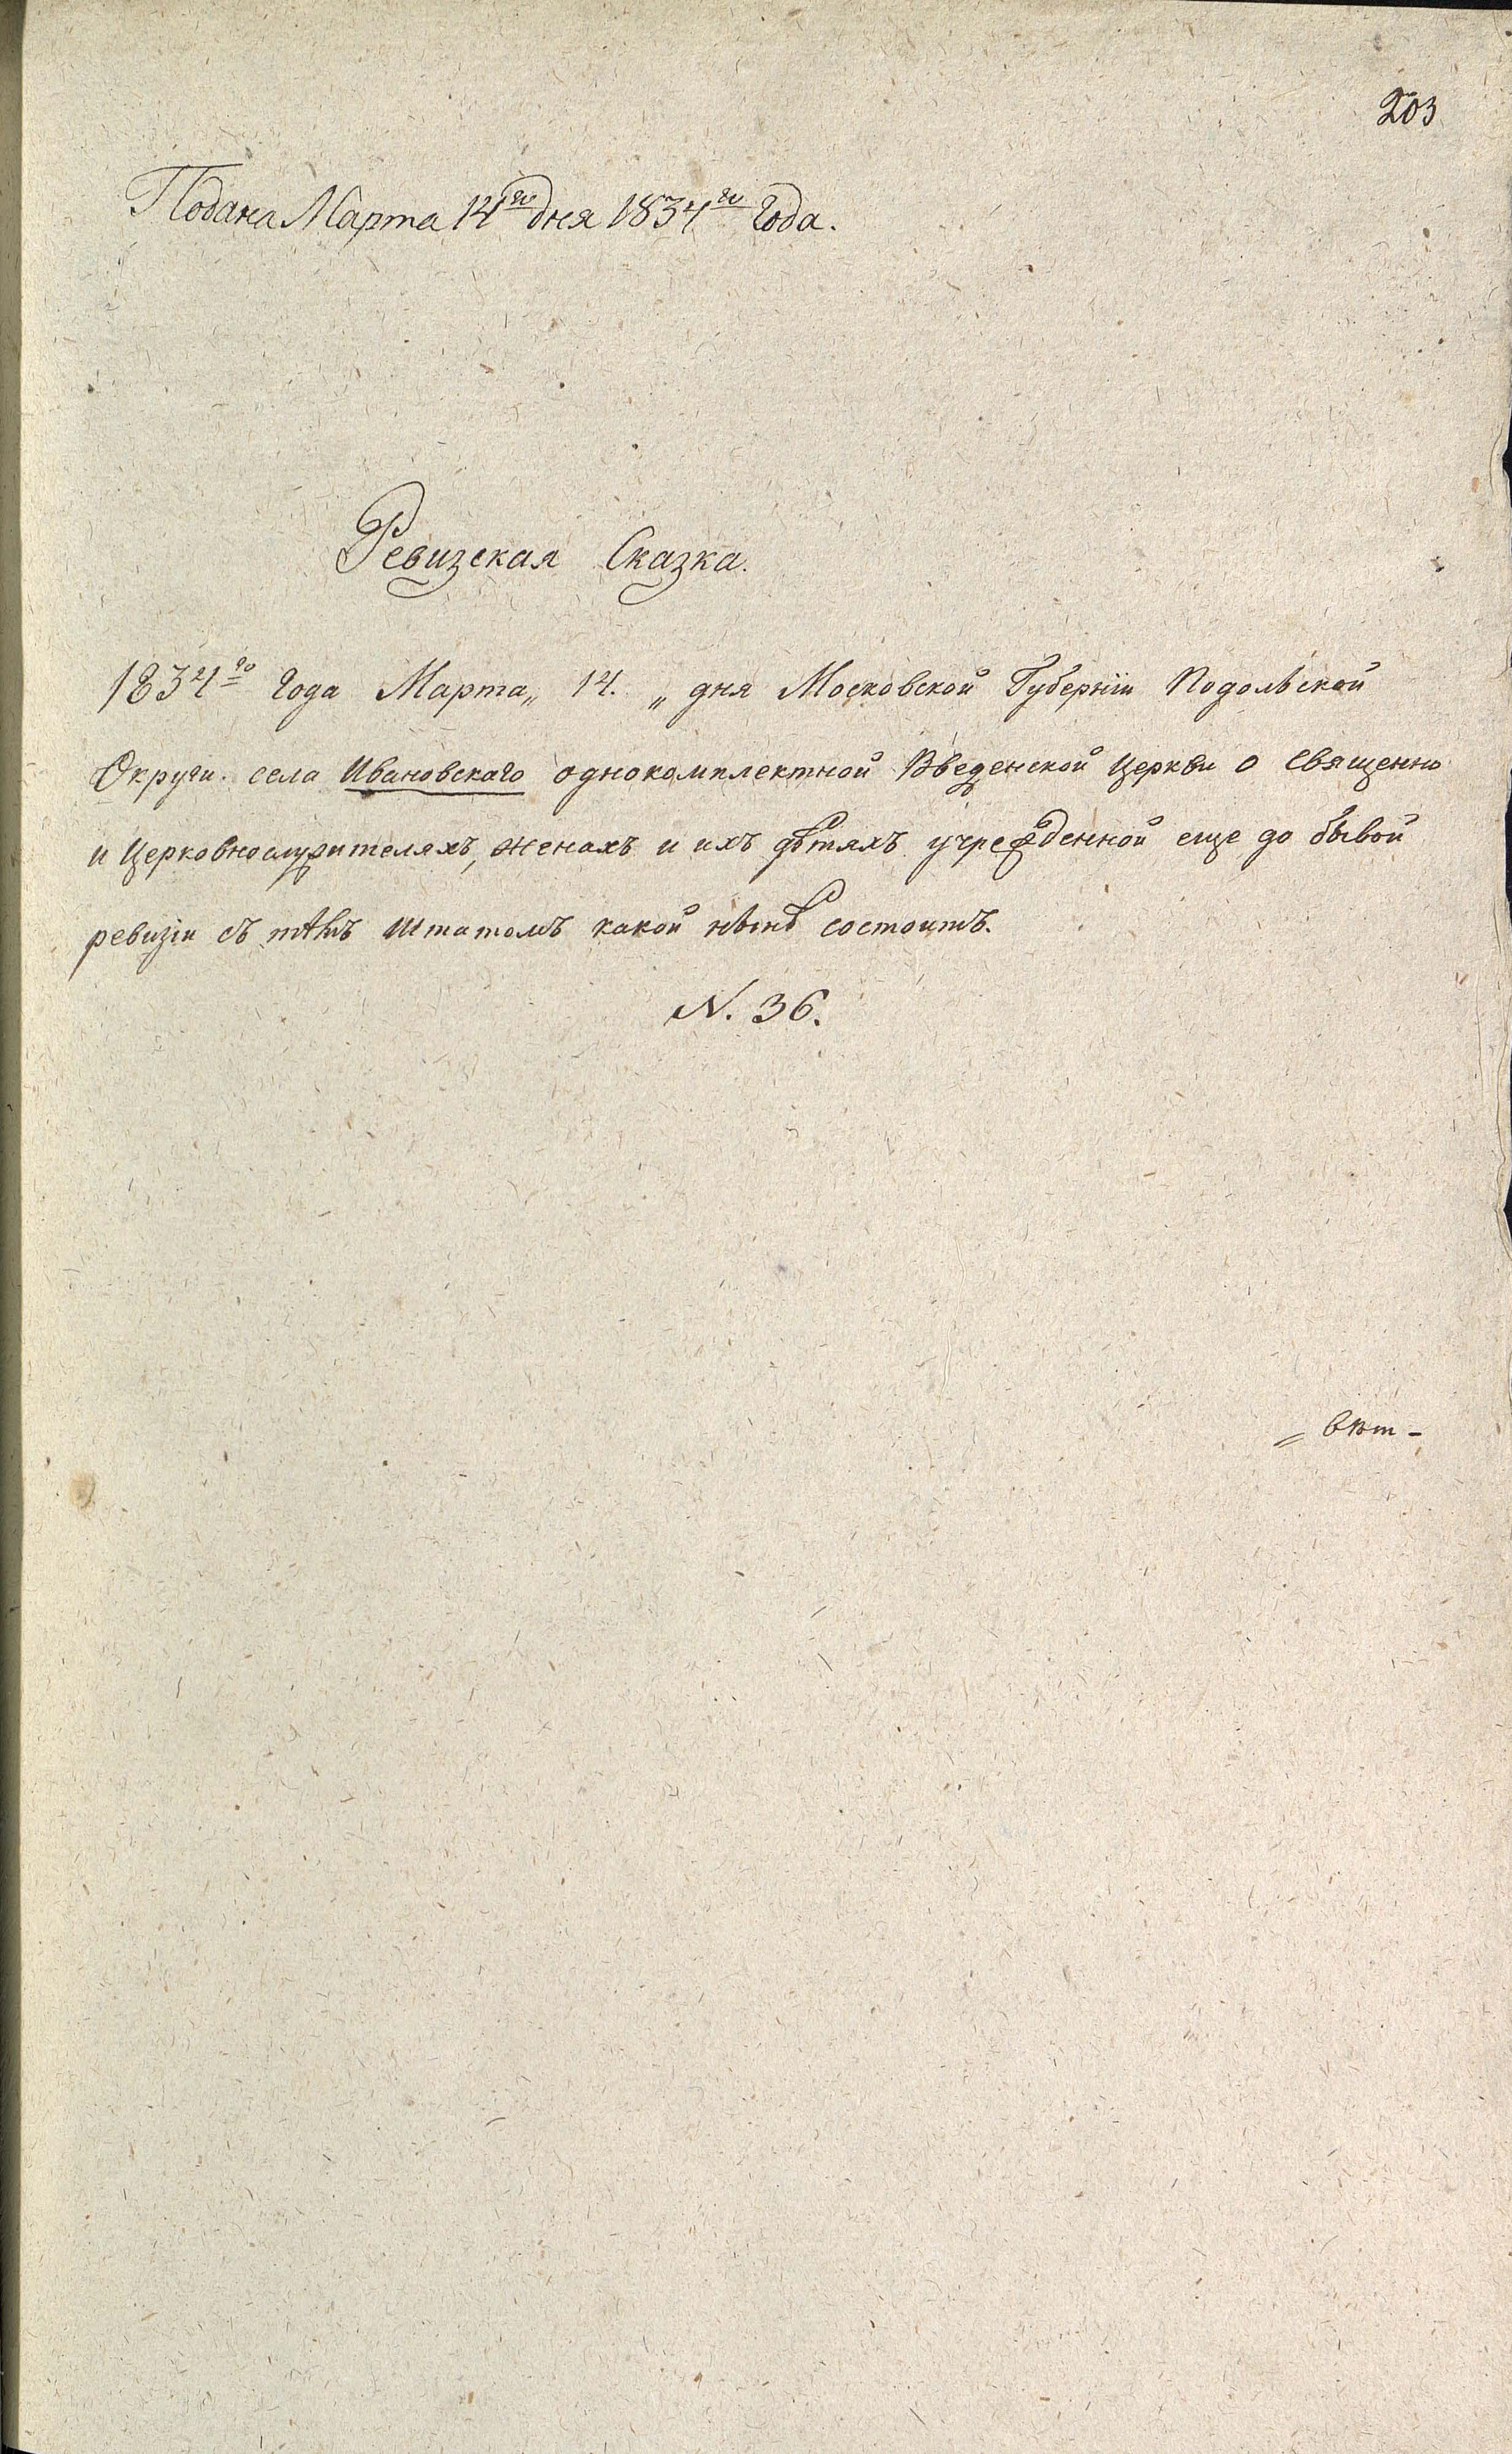 203
Подана Марта 14го дня 1834го Года.
Ревизская Сказка.
1834го Года Марта „ 14. „ дня Московской Губернiи Подольской
Округи. села Ивановскаго однокомплектной Введенской Церкви о Священно
и Церковнослужителяхъ, женахъ и ихъ дѣтяхъ учрежденной еще до бывой
ревизiи съ тѣмъ Штатомъ какой нынѣ состоитъ.
N. 36.